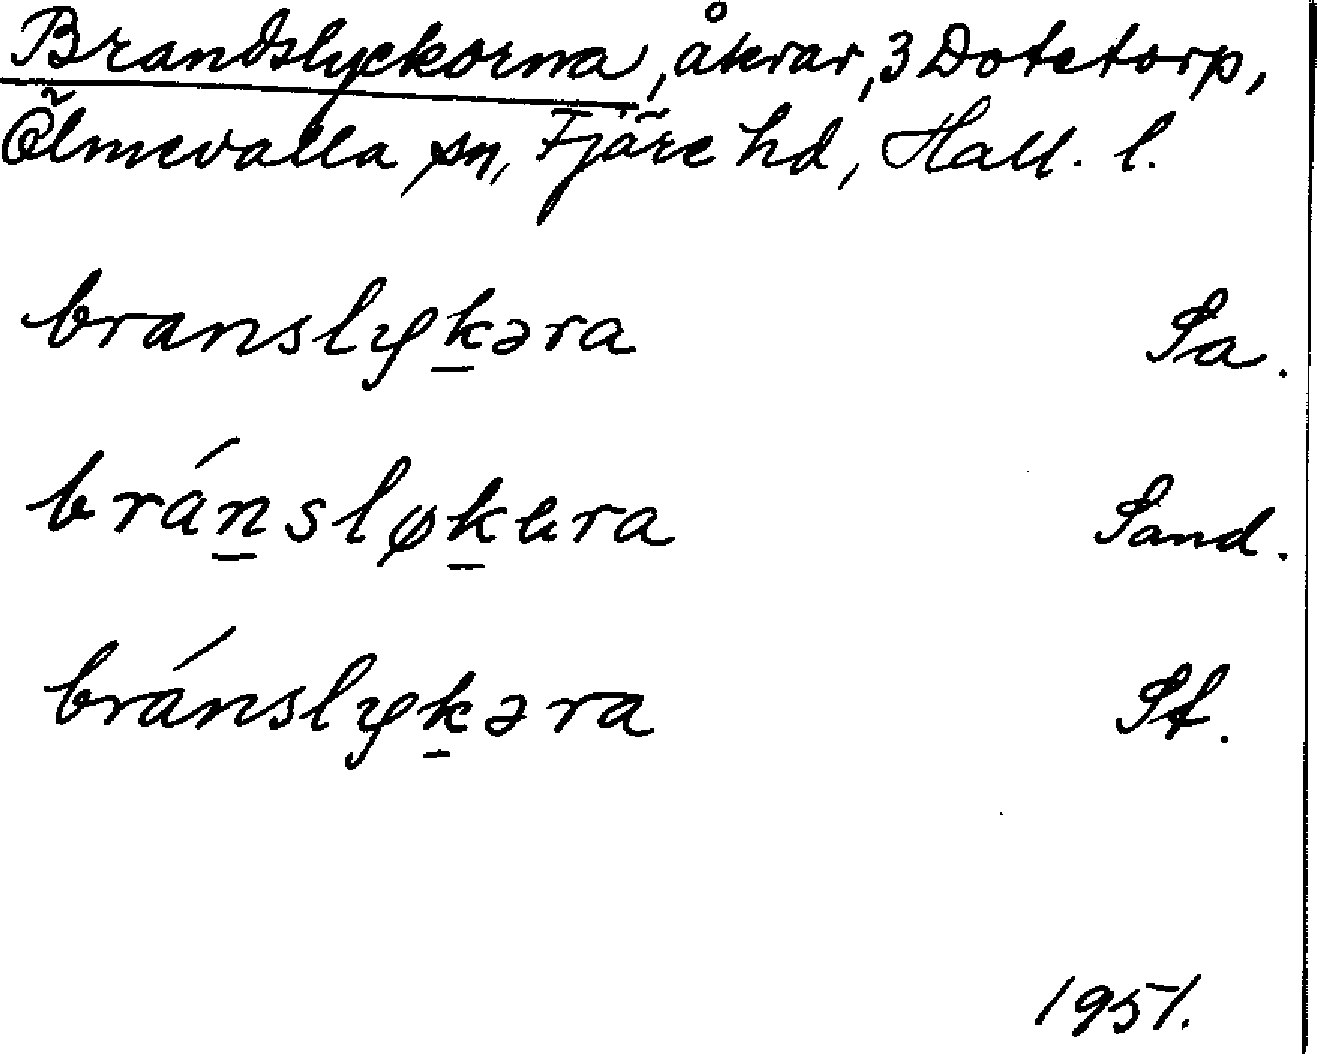 Brandslyckorna, åkrar, 3 Dotetorp,
Ölmevalla sn, Fjäre hd, Hall. l.
branslykəra Sa.
bránsløkɯra Sand.
bránslykəra St.
1951.